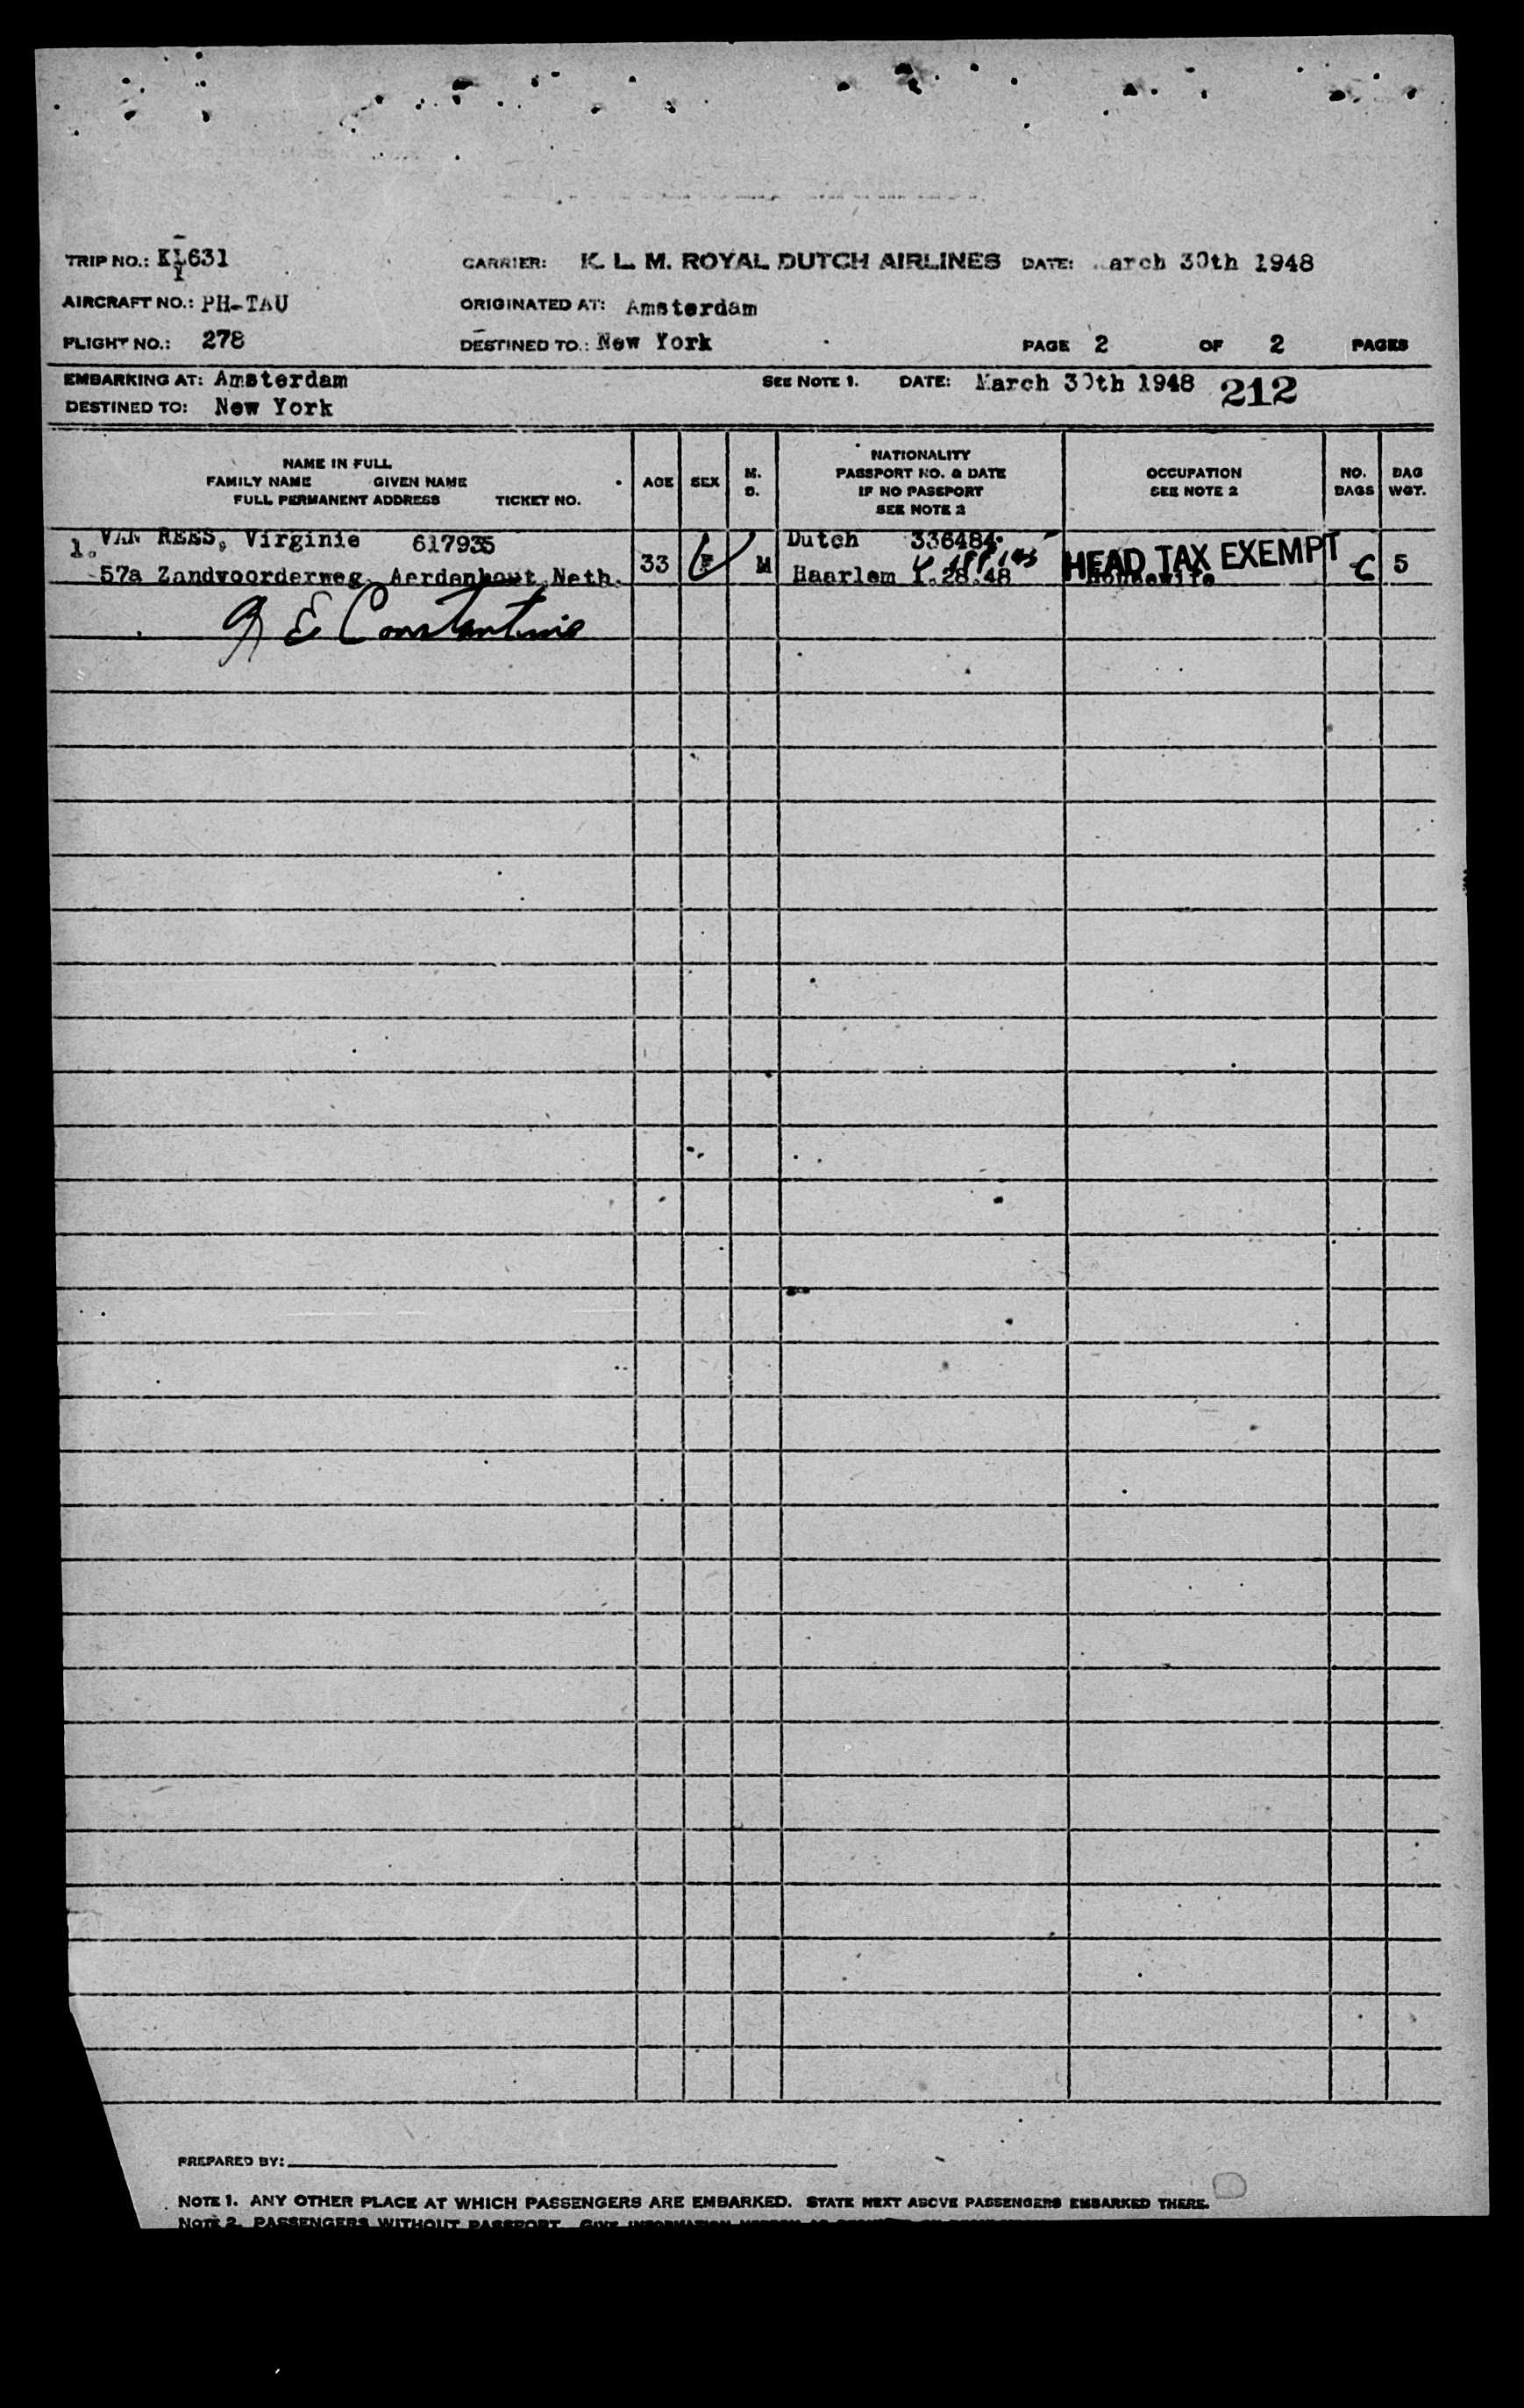 TRIP NO.: KL631 CARRIER: K. L. M. ROYAL DUTCH AIRLINES DATE: arch 30th 1948
AIRCRAFT NO.: PH-TAU ORIGINATED AT: Amsterdam
FLIGHT NO.: 278 DESTINED TO.: New York PAGE 2 OF 2 PAGES
EMBARKING AT: Amsterdam SEE NOTE 1. DATE: March 30th 1948 212
DESTINED TO: New York
NAME IN FULL
FAMILY NAME GIVEN NAME
FULL PERMANENT ADDRESS TICKET NO.
AGE
SEX
M.
S.
NATIONALITY
PASSPORT NO. & DATE
IF NO PASSPORT
SEE NOTE 2
OCCUPATION
SEE NOTE 2
NO.
BAGS
BAG
WGT.
1. VAN REES, Virginie 617935 Dutch 336484
57a Zandvoorderweg, Aerdenhout, Neth. 33 F M Haarlem 1.28.48 Housewife 5
HEAD TAX EXEMPT
E Constantine
PREPARED BY:
NOTE 1. ANY OTHER PLACE AT WHICH PASSENGERS ARE EMBARKED. STATE NEXT ABOVE PASSENGERS EMBARKED THERE.
NOTE 2. PASSENGERS WITHOUT PASSPORT. GIVE INFORMATION